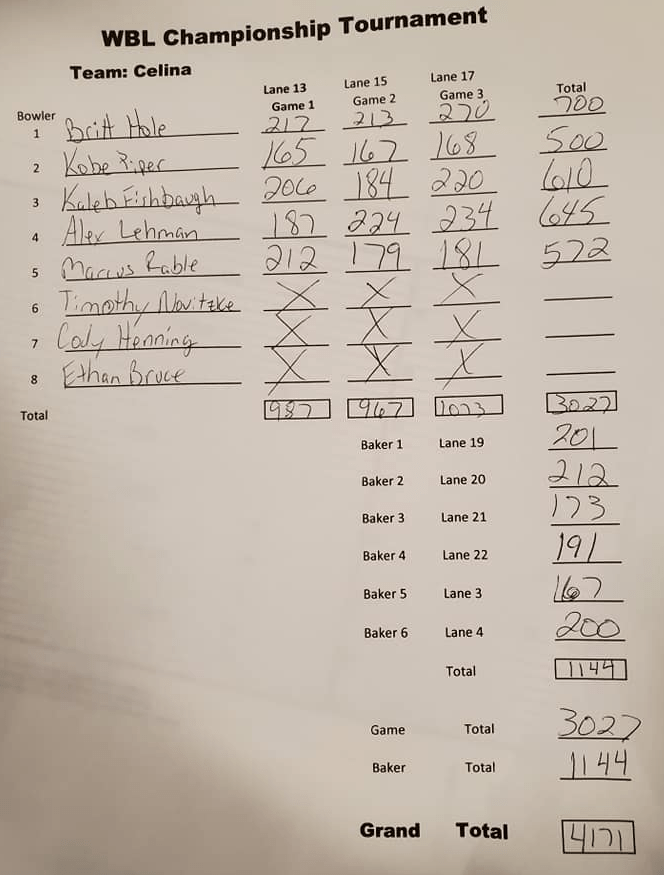 WBL Championship Tournament
Team: Celina
Lane 13 Lane 15 Lane 17
Bowler Game 1 Game 2 Game 3 Total
1 Britt Hole 217 213 270 700
2 Kobe Piper 165 167 168 500
3 Kaleb Fishbaugh 206 184 220 610
4 Alex Lehman 187 224 234 645
5 Marcus Rable 212 179 181 572
6 Timothy Novitzke X X X
7 Cody Henning X X X
8 Ethan Bruce X X X
Total 987 967 1073 3027
Baker 1 Lane 19 201
Baker 2 Lane 20 212
Baker 3 Lane 21 173
Baker 4 Lane 22 191
Baker 5 Lane 3 167
Baker 6 Lane 4 200
Total 1144
Game Total 3027
Baker Total 1144
Grand Total 4171